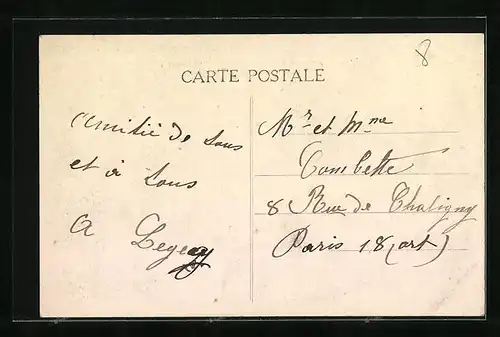 8
CARTE POSTALE
amitié de tous
et à tous
A
Mr et Mme
Tombette
8 Rue de Chaligny
Paris 18 (art)